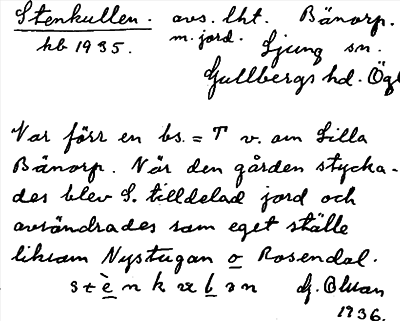 Stenkullen. avs. lht. Bänorp.
hb 1935. m. jord. Ljung sn.
Gullbergs hd. Ög
Var förr en bs. = T v. om Lilla
Bänorp. När den gården stycka-
des blev S. tilldelad jord och
avsöndrades som eget ställe
liksom Nystugan o Rosendal.
stènkæl
1936.